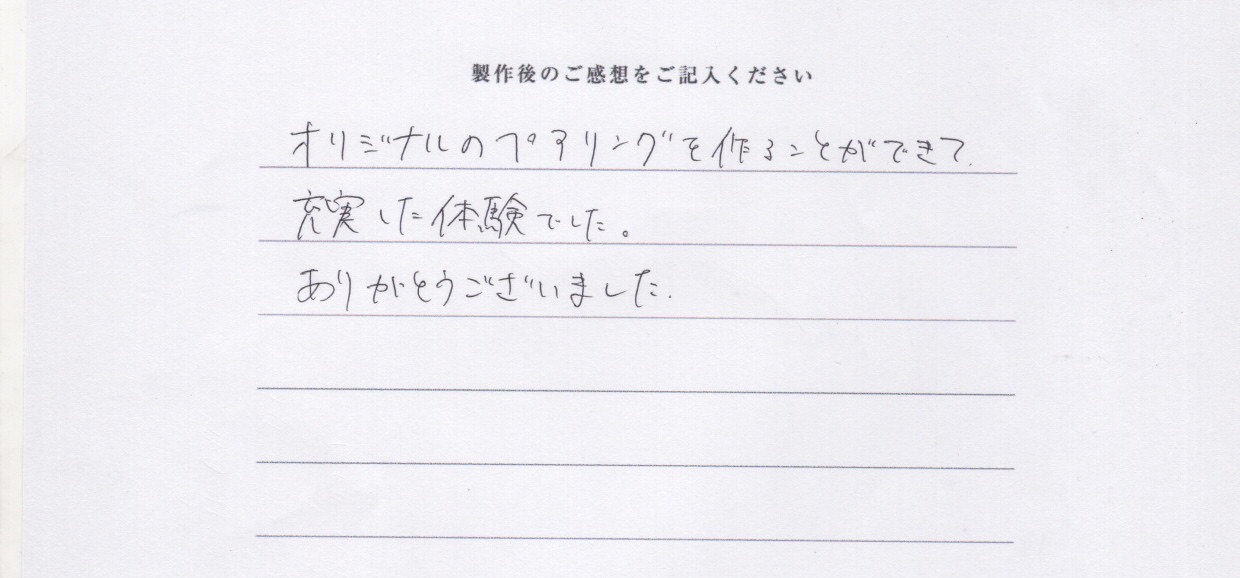 製作後のご感想をご記入ください
オリジナルのペアリングを作ることができて、
充実した体験でした。
ありがとうございました。